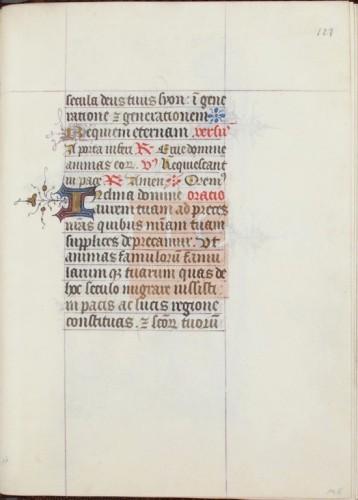 127
secula deus tuus syon: ī gene
ratione ⁊ generationem
Requiem eternam versꝰ
A porta inferi R Erue domine
animas eoꝝ. V Requiescant
in pace R Amen Oremꝰ
Inclina domine oracio
aurem tuam ad preces
n̄ras quibus mīam tuam
supplices deprecamur. Vt
animas famulorum famu
larum qꝫ tuarum quas de
hoc seculo migrare iussisti:
in pacis ac lucis regione
constituas. ⁊ sc̄oꝝ tuorū